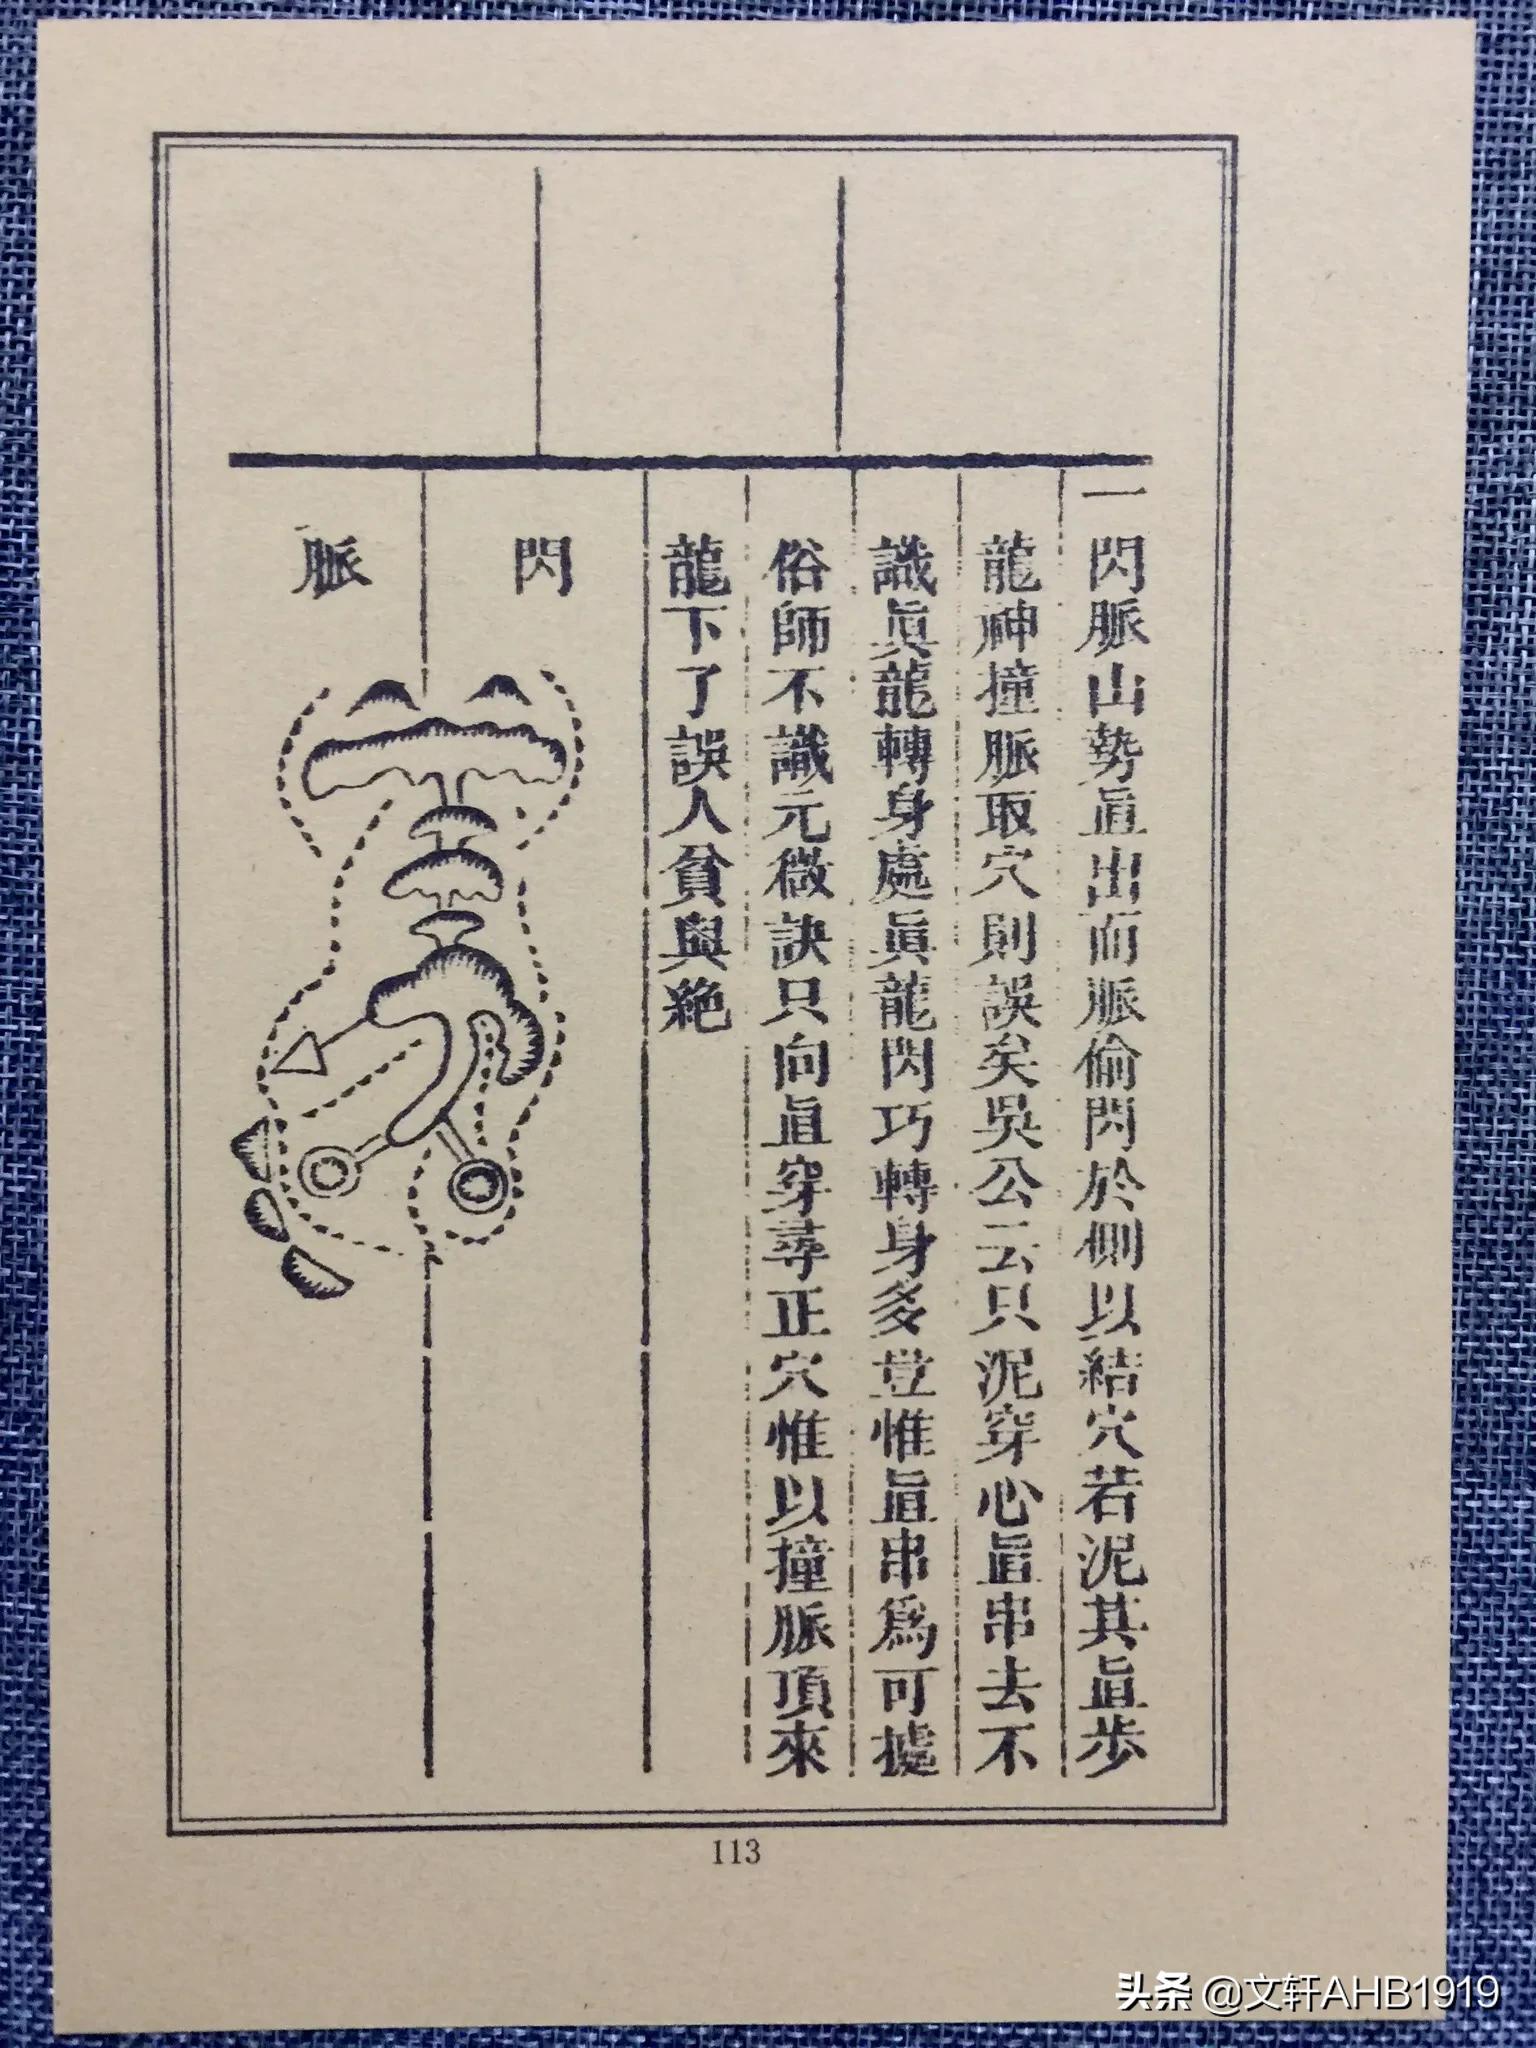 一閃脈山勢直出而脈偷閃於側以結穴若泥其直步
龍神撞脈取穴則誤矣吳公云只泥穿心直串去不
識眞龍轉身處眞龍閃巧轉身多豈惟直串爲可據
俗師不識元微訣只向直穿尋正穴惟以撞脈頂來
龍下了誤人貧與絕
閃
脈
113
头条 @文轩AHB1919